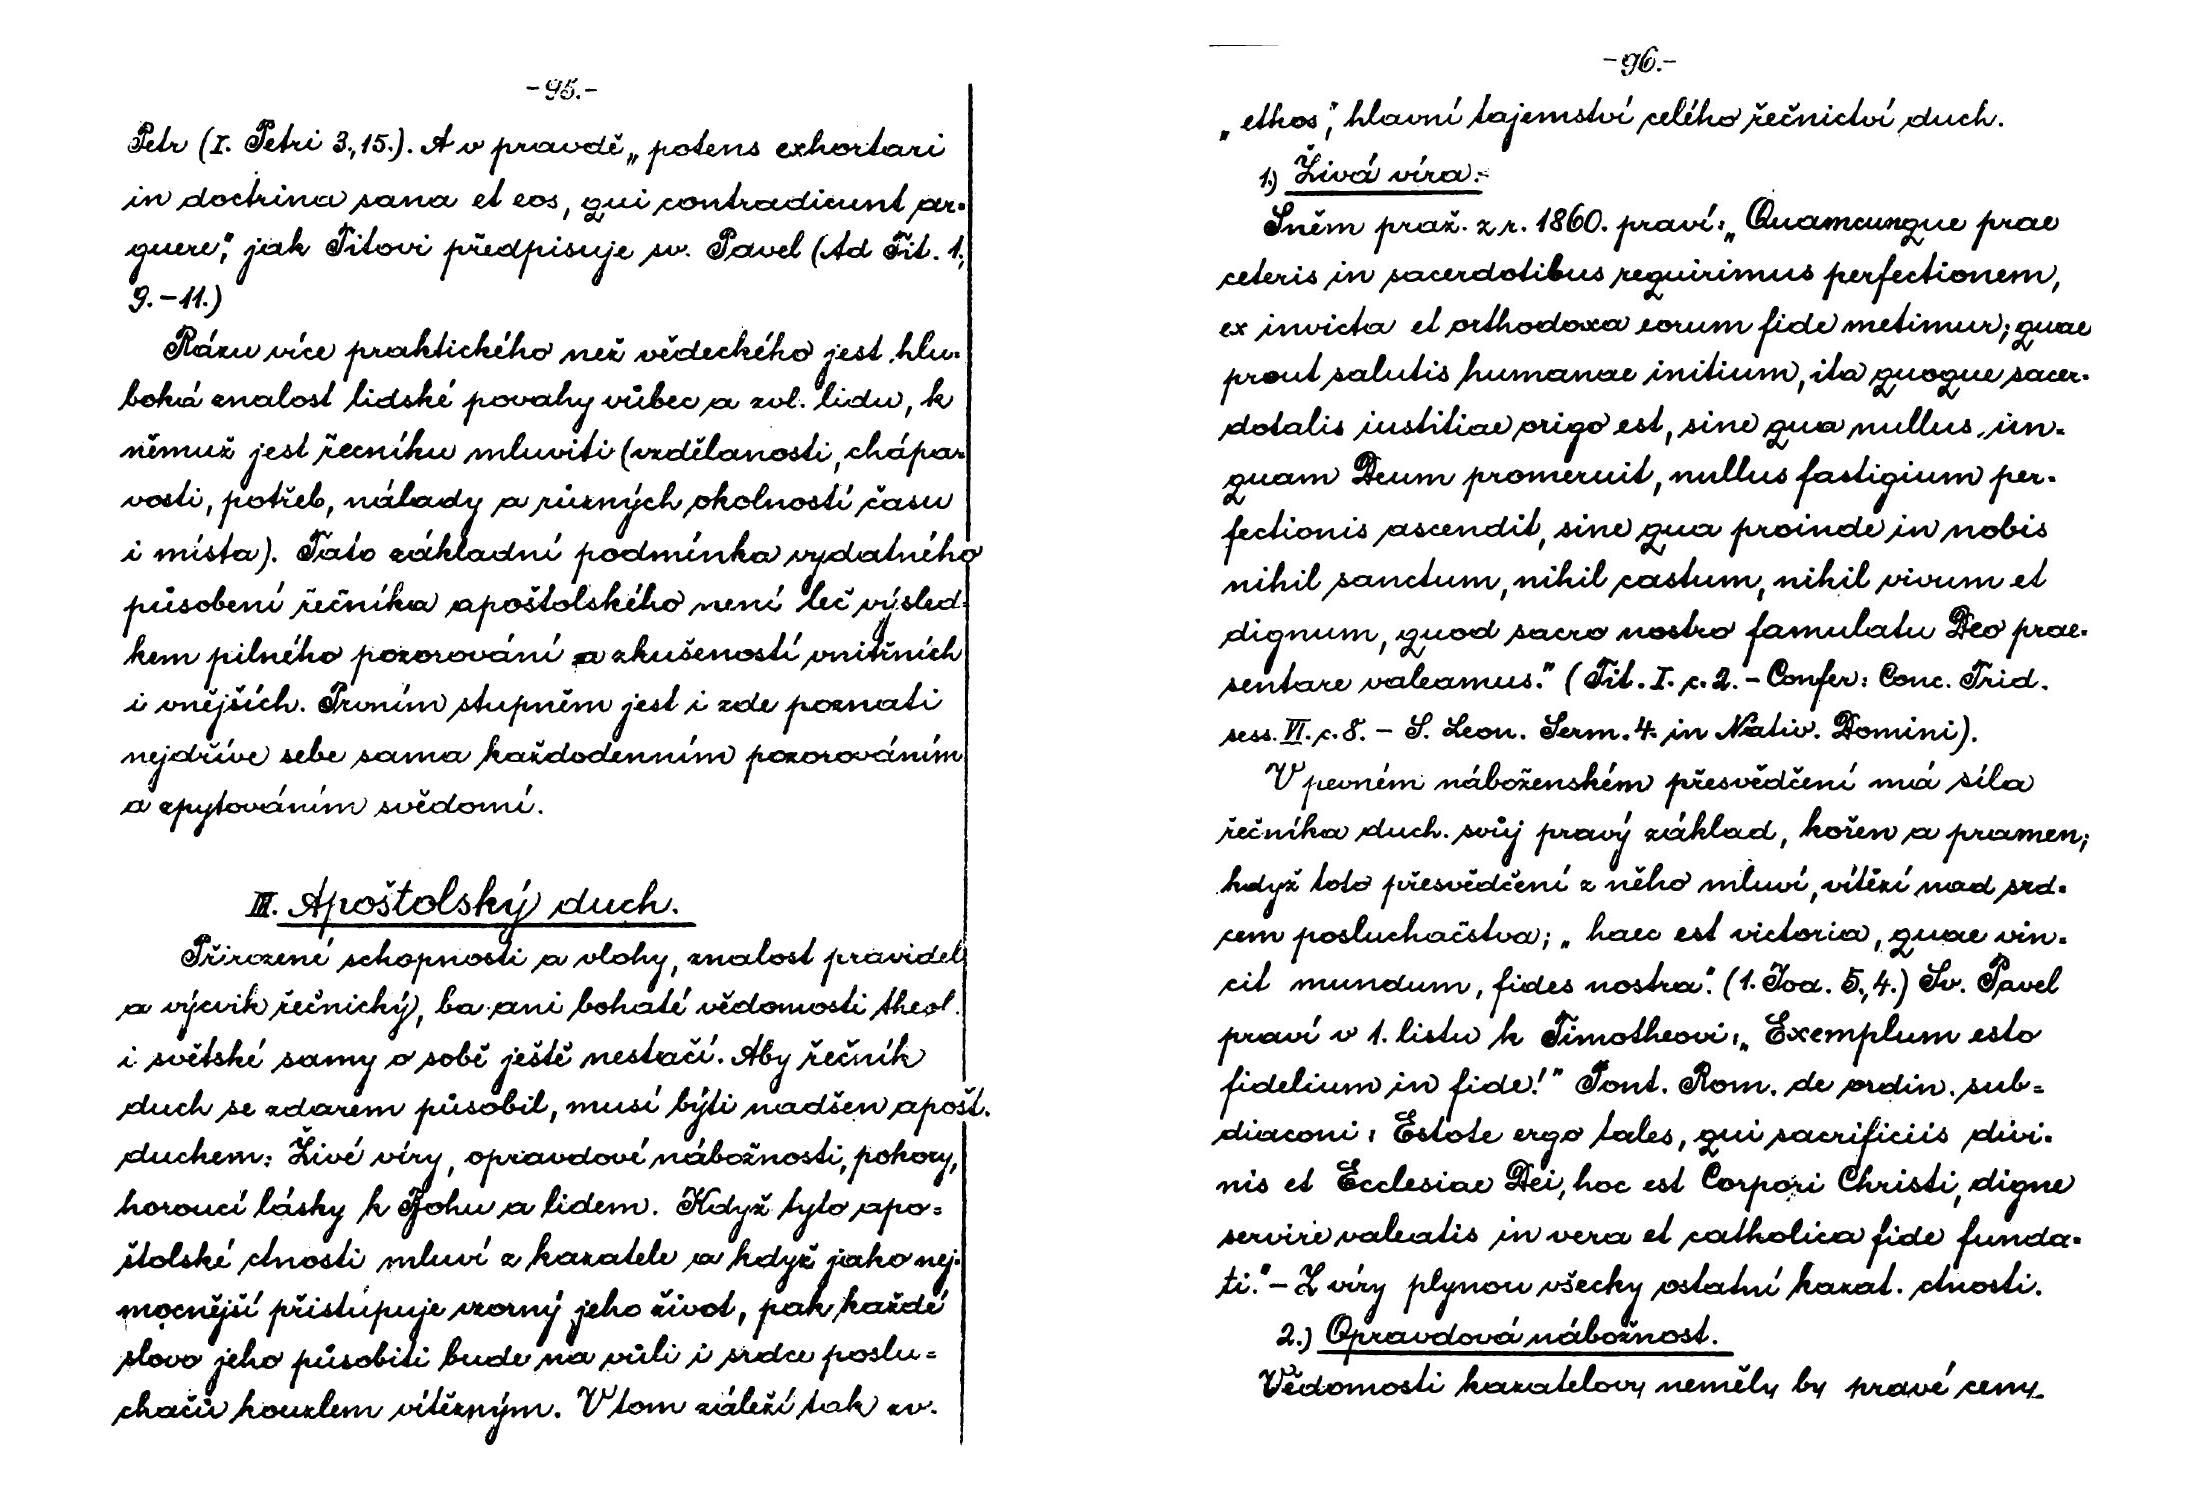 -95.-
Petr (I. Petri 3,15.). A v pravdě „potens exhortari
in doctrina sana et eos, qui contradicunt ar-
guere“, jak Titovi předpisuje sv. Pavel (Ad Tit. 1,
9.-11.)
Rázu více praktického než vědeckého jest hlu-
boká znalost lidské povahy vůbec a zvl. lidu, k
němuž jest řečníku mluviti (vzdělanosti, chápa-
vosti, potřeb, nálady a různých okolností času
i místa). Tato základní podmínka vydatného
působení řečníka apoštolského není leč výsled-
kem pilného pozorování a zkušeností vnitřních
i vnějších. Prvním stupněm jest i zde poznati
nejdříve sebe sama každodenním pozorováním
a zpytováním svědomí.
III. Apoštolský duch.
Přirozené schopnosti a vlohy, znalost pravidel
a výcvik řečnický, ba ani bohaté vědomosti theol.
i světské samy o sobě ještě nestačí. Aby řečník
duch se zdarem působil, musí býti nadšen apošt.
duchem: Živé víry, opravdové nábožnosti, pokory,
horoucí lásky k Bohu a lidem. Když tyto apo-
štolské ctnosti mluví z kazatele a když jako nej-
mocnější přistupuje vzorný jeho život, pak každé
slovo jeho působiti bude na vůli i srdce poslu-
chačův kouzlem vítězným. V tom záleží tak zv.
-96.-
„ethos“, hlavní tajemství celého řečnictví duch.
1.) Živá víra:-
Sněm praž. z r. 1860. praví: „Quamcunque prae
ceteris in sacerdotibus requirimus perfectionem,
ex invicta et orthodoxa eorum fide metimur; quae
prout salutis humanae initium, ita quoque sacer-
dotalis iustitiae origo est, sine qua nullus un-
quam Deum promeruit, nullus fastigium per-
fectionis ascendit, sine qua proinde in nobis
nihil sanctum, nihil castum, nihil vivum et
dignum, quod sacro nostro famulatu Deo prae-
sentare valeamus.“ (Tit. I. c. 2. - Confer: Conc. Trid.
sess. VI. c. 8. - S. Leon. Serm. 4. in Nativ. Domini).
V pevném náboženském přesvědčení má síla
řečníka duch. svůj pravý základ, kořen a pramen;
když toto přesvědčení z něho mluví, vítězí nad srd-
cem posluchačstva; „haec est victoria, quae vin-
cit mundum, fides nostra“. (1. Joa. 5,4.) Sv. Pavel
praví v 1. listu k Timotheovi: „Exemplum esto
fidelium in fide!“ Pont. Rom. de ordin. sub-
diaconi: Estote ergo tales, qui sacrificiis divi-
nis et Ecclesiae Dei, hoc est Corpori Christi, digne
servire valeatis in vera et catholica fide funda-
ti.“ - Z víry plynou všecky ostatní kazat. ctnosti.
2.) Opravdová nábožnost.
Vědomosti kazatelovy neměly by pravé ceny